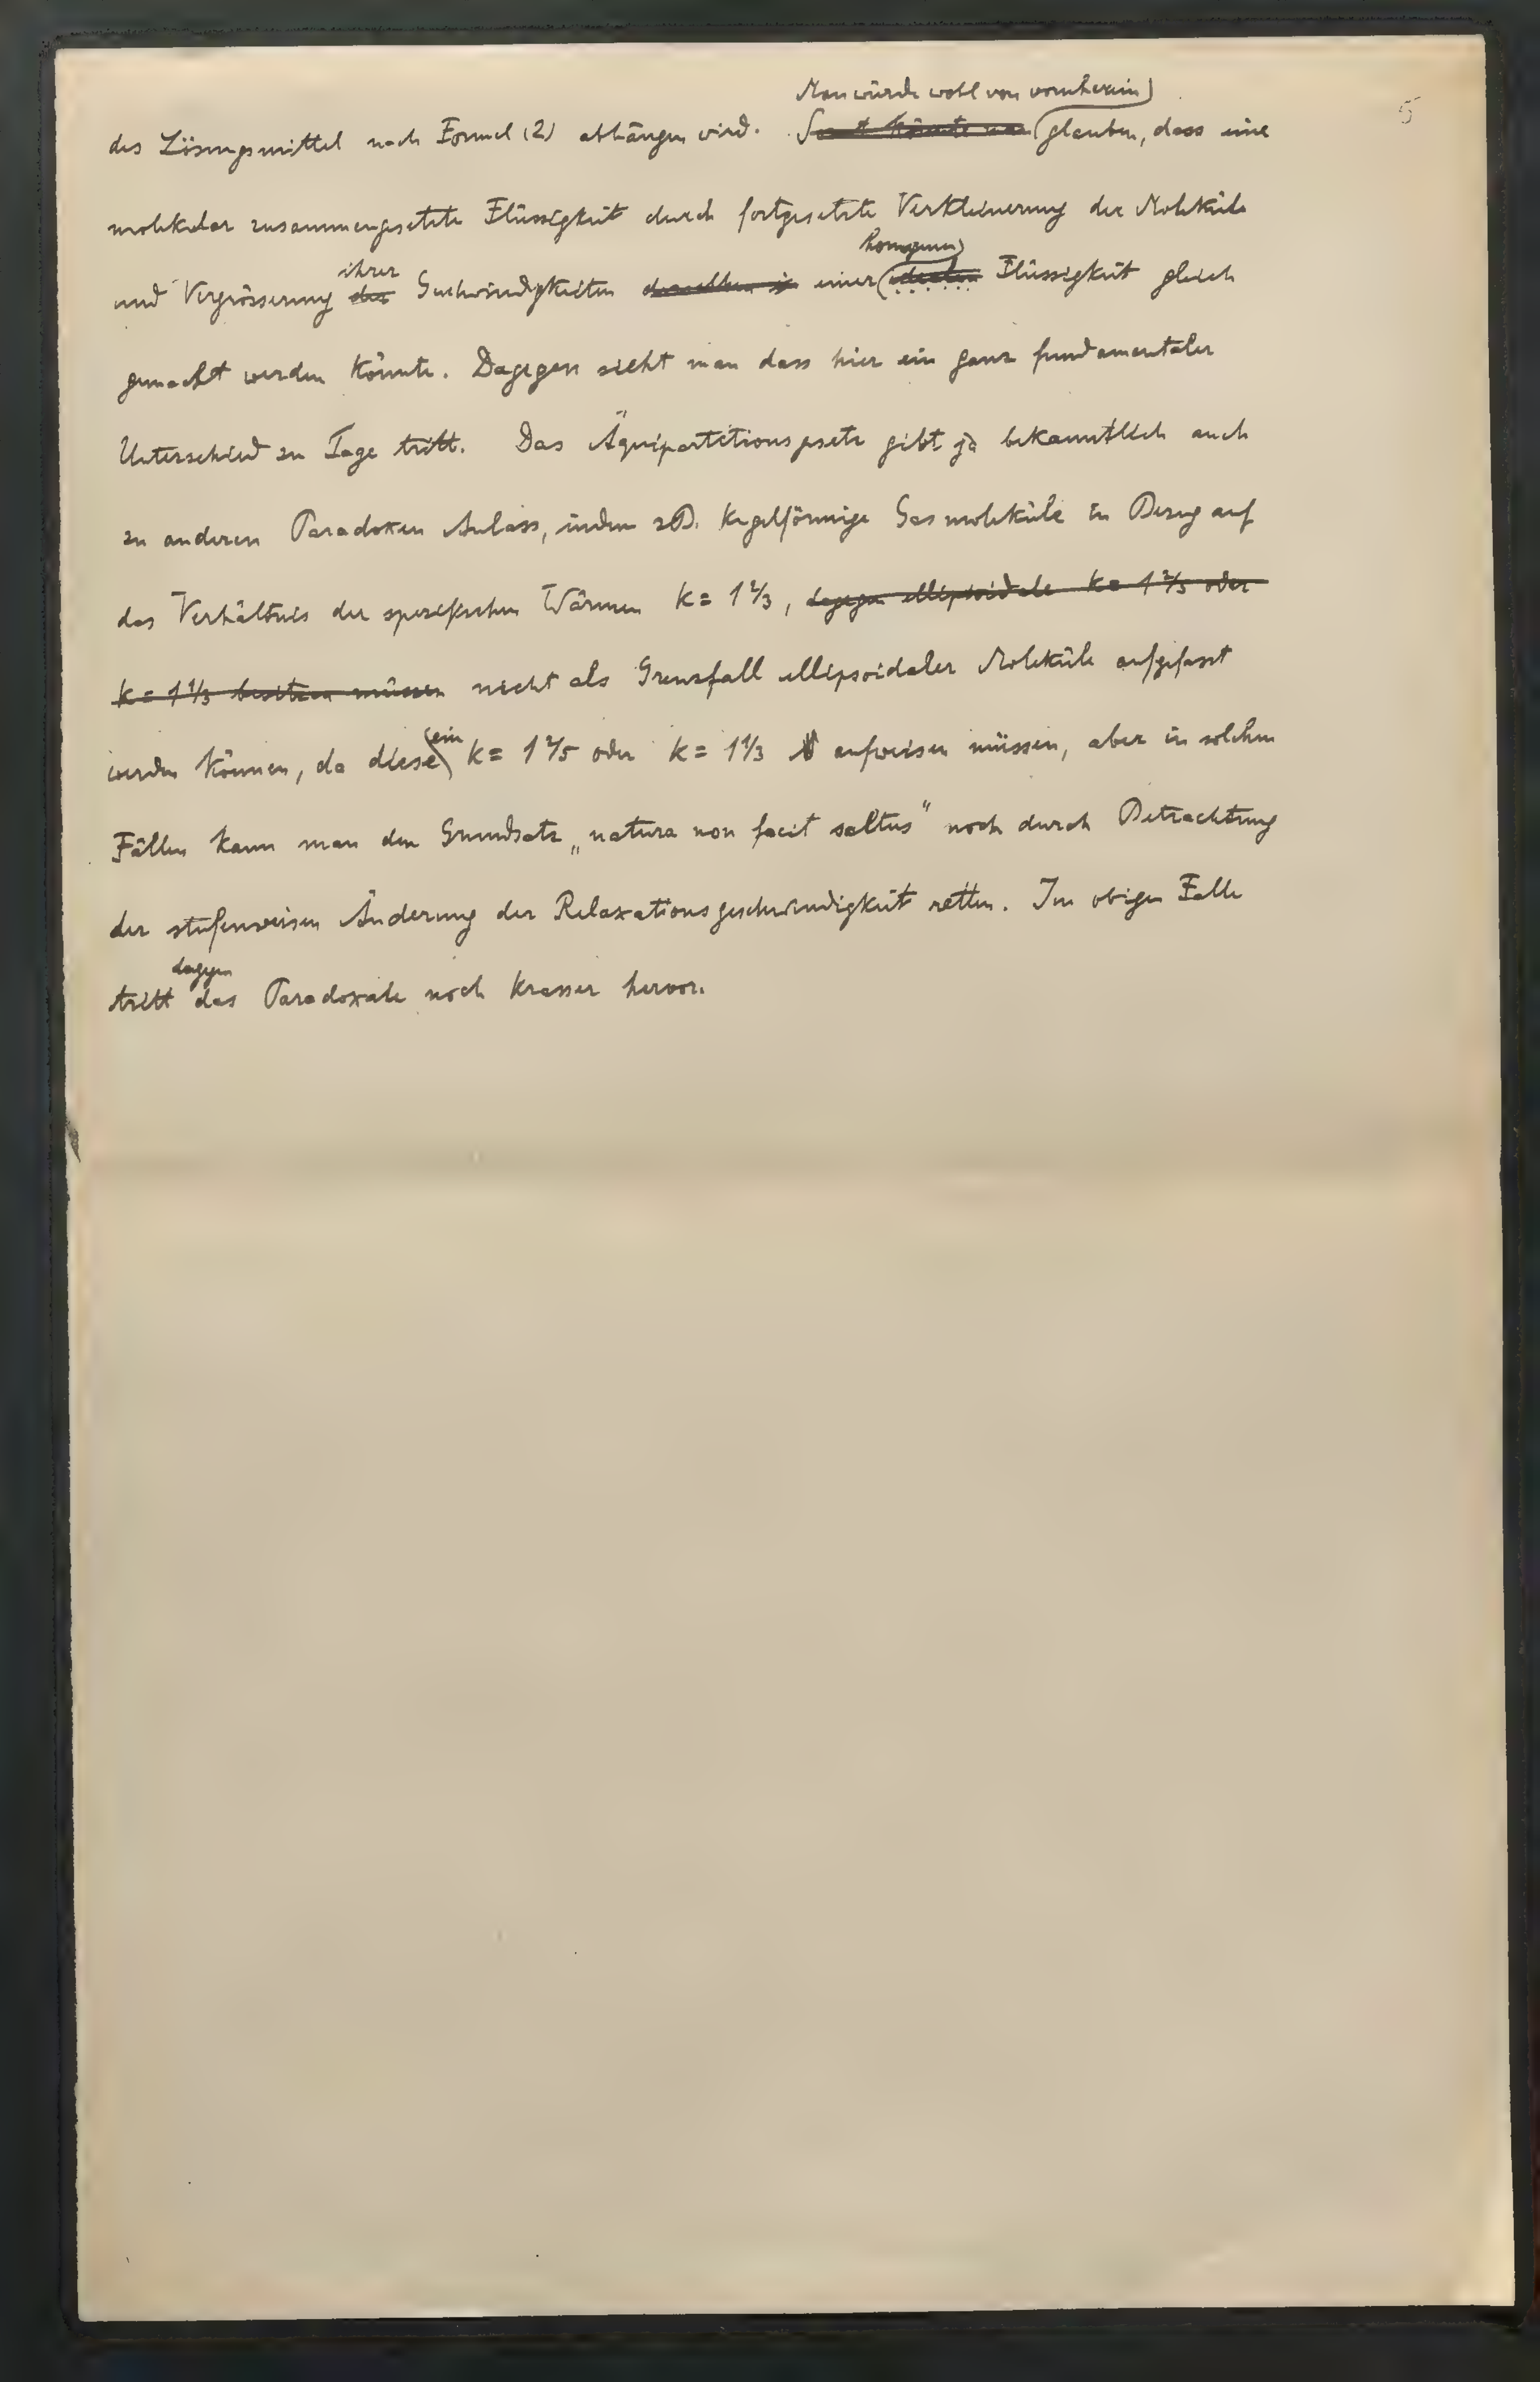 5
Man würde wohl von vornherein
des Lösungsmittel nach Formel (2) abhängen wird. Sonst könnte man glauben, dass eine
molekular zusammengesetzte Flüssigkeit durch fortgesetzte Verkleinerung der Moleküle
ihrer homogenen
und Vergrösserung der Geschwindigkeiten derselben einer idealen Flüssigkeit gleich
gemacht werden könnte. Dagegen sieht man dass hier ein ganz fundamentaler
Unterschied zu Tage tritt. Das Äquipartitionsgesetz gibt ja bekanntlich auch
zu anderen Paradoxen Anlass, indem zB. kugelförmige Gasmoleküle in Bezug auf
das Verhältnis der spezifischen Wärmen k = 1 2/3, dagegen ellipsoidale k = 1 2/5 oder
k = 1 1/3 besitzen müssen nicht als Grenzfall ellipsoidaler Moleküle aufgefasst
ein
werden können, da diese k = 1 2/5 oder k = 1 1/3 aufweisen müssen, aber in solchen
Fällen kann man den Grundsatz „natura non facit saltus“ noch durch Betrachtung
der stufenweisen Änderung der Relaxationsgeschwindigkeit retten. Im obigen Falle
dagegen
tritt das Paradoxale noch krasser hervor.